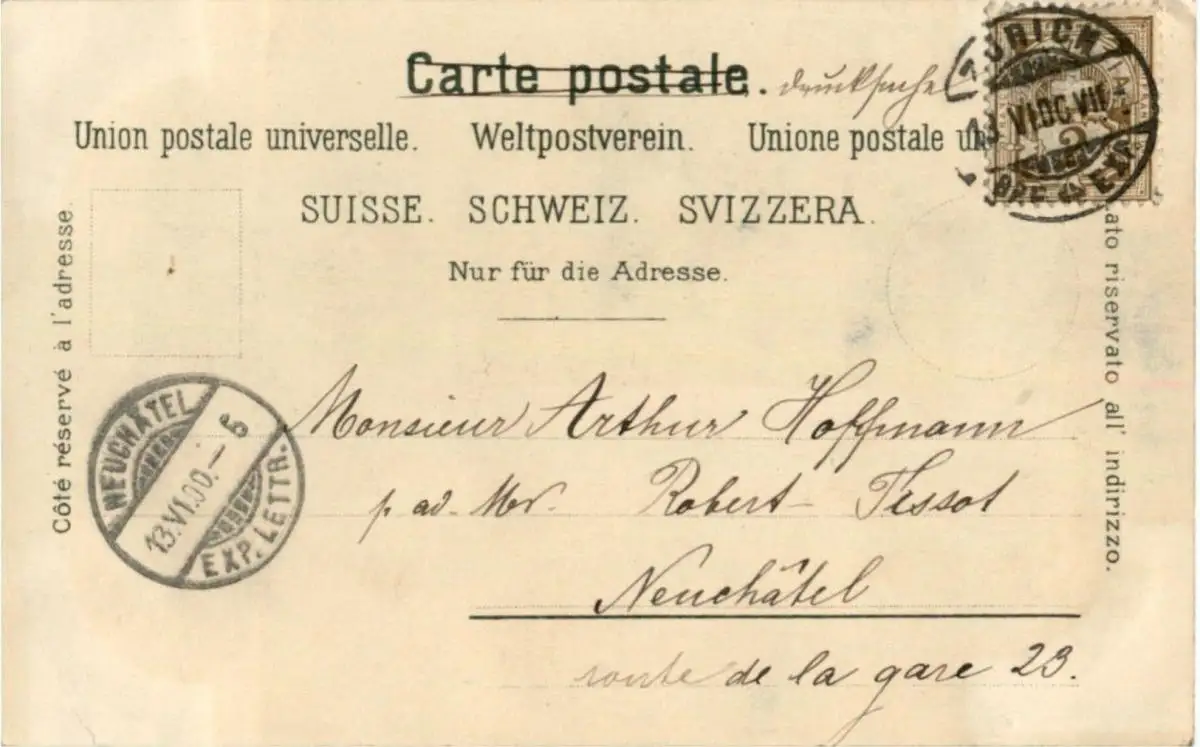 Carte postale. Drucksache
Union postale universelle. Weltpostverein. Unione postale un
SUISSE. SCHWEIZ. SVIZZERA.
Nur für die Adresse.
Côté réservé à l'adresse.
ato riservato all' indirizzo.
ZÜRICH
13 VI.00.VII
BRF. EXP.
2
NEUCHÂTEL
13.VI.00.-6
EXP. LETTR.
Monsieur Arthur Hoffmann
p. ad. Mr. Robert-Tissot
Neuchâtel
route de la gare 23.